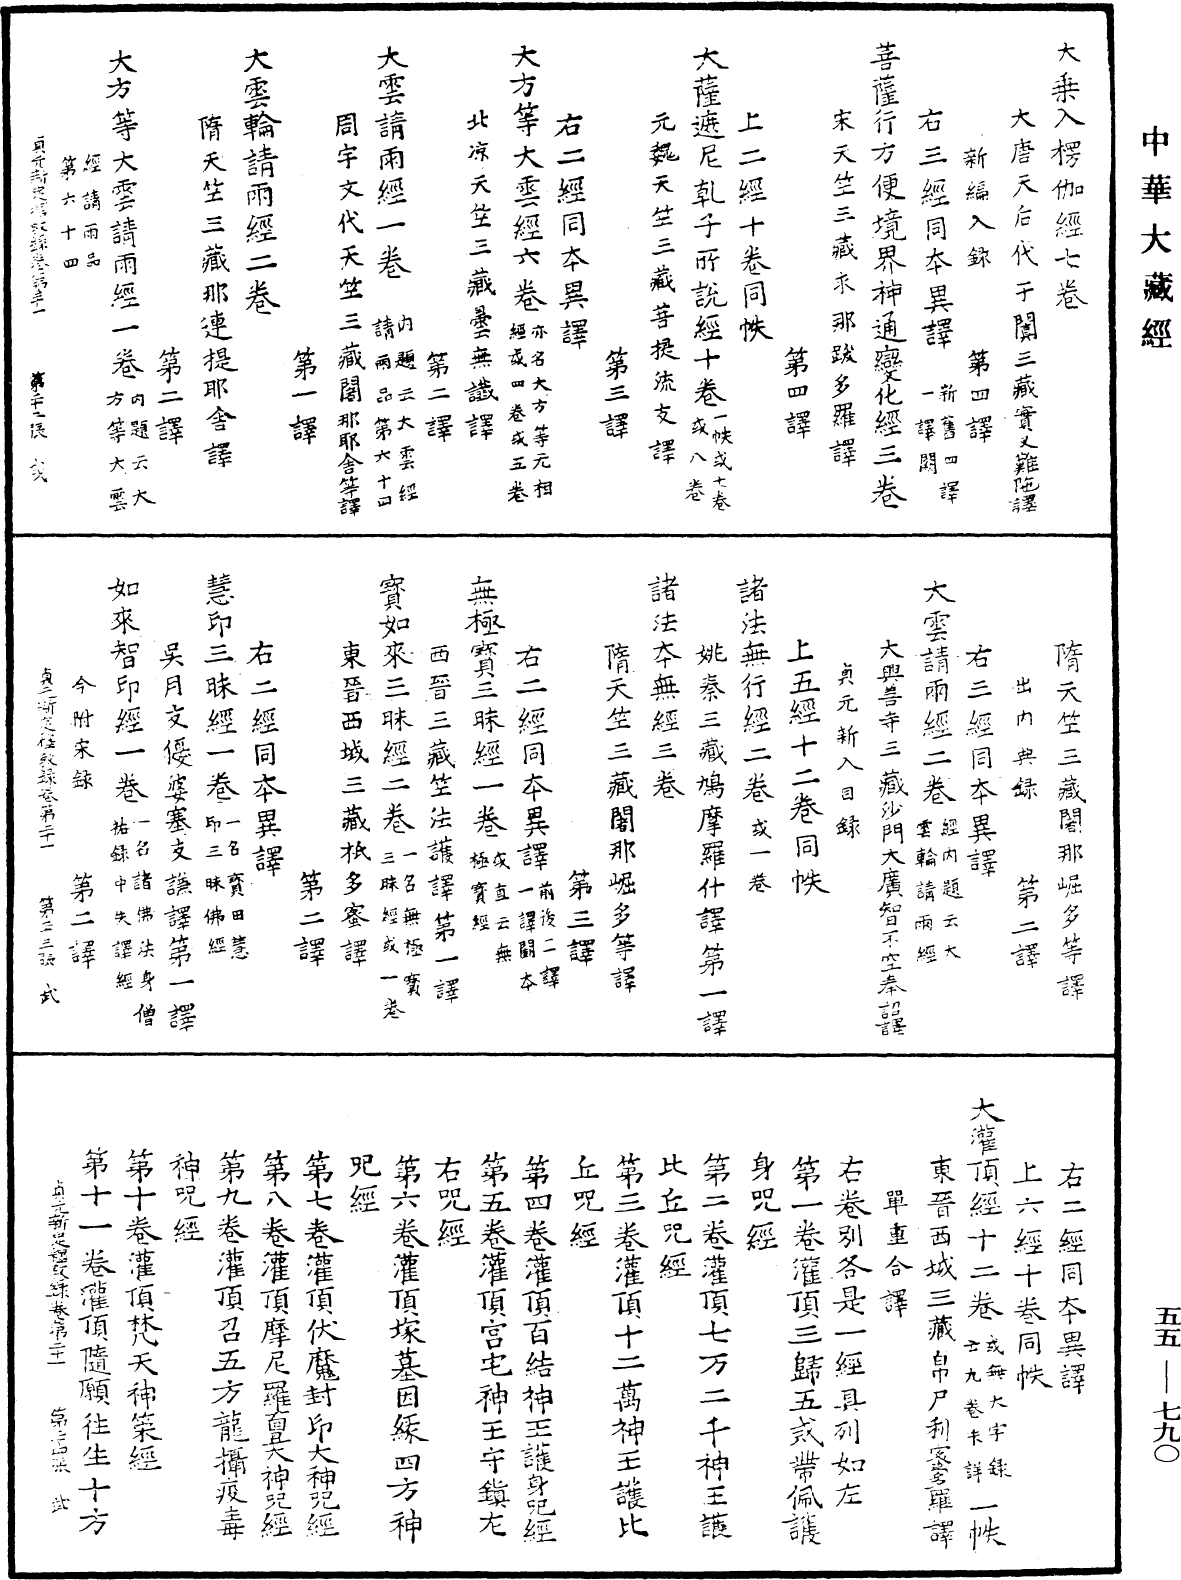 中華大藏經
大乗入楞伽經七卷
大唐天后代于闐三藏實叉難陁譯
新編入錄　第四譯
右三經同夲異譯　新舊四譯
一譯闕
菩薩行方便境界神通變化經三卷
宋天竺三藏求那跋多羅譯
第四譯
上二經十卷同帙
大薩遮尼乹子所說經十卷　一帙或七卷
或八卷
元魏天竺三藏菩提流支譯
第三譯
右二經同夲異譯
大方等大雲經六卷　亦名大方等无相
經或四卷或五卷
北凉天竺三藏曇無讖譯
第二譯
大雲請雨經一卷　內題云大雲經
請雨品第六十四
周宇文代天竺三藏闍那耶舍等譯
第一譯
大雲輪請雨經二卷
隋天竺三藏那連提耶舍譯
第二譯
大方等大雲請雨經一卷　內題云大
方等大雲
經請雨品
第六十四
隋天竺三藏闍那崛多等譯
出內典錄　第二譯
右三經同夲異譯
大雲請雨經二卷　經內題云大
雲輪請雨經
大興善寺三藏沙門大廣智不空奉詔譯
貞元新入目録
上五經十二卷同帙
諸法無行經二卷　或一卷
姚秦三藏鳩摩羅什譯第一譯
諸法夲無經三卷
隋天竺三藏闍那崛多等譯
第三譯
右二經同夲異譯　前後二譯
一譯闕本
無極寳三昧經一卷　或直云無
極寳經
西晉三藏竺法護譯第一譯
寳如來三昧經二卷　一名無極寳
三昧經或一卷
東晉西域三藏秖多蜜譯
第二譯
右二經同夲異譯
慧印三昧經一卷　一名寳田慧
印三昧佛經
吳月支優婆塞支謙譯第一譯
如來智印經一卷　一名諸佛法身僧
祐錄中失譯經
今附宋錄　第二譯
右二經同夲異譯
上六經十卷同帙
大灌頂經十二卷　或無大字錄
云九卷未詳　一帙
東晉西域三藏帛尸利蜜多羅譯
單重合譯
右卷別各是一經具列如左
第一卷灌頂三歸五戒帶佩護
身咒經
第二卷灌頂七万二千神王護
比丘咒經
第三卷灌頂十二萬神王護比
丘咒經
第四卷灌頂百結神王護身咒經
第五卷灌頂宮宅神王守鎮左
右咒經
第六卷灌頂塚墓因緣四方神
咒經
第七卷灌頂伏魔封印大神咒經
第八卷灌頂摩尼羅亶大神咒經
第九卷灌頂召五方龍攝疫毒
神咒經
第十卷灌頂梵天神策經
第十一卷灌頂隨願往生十方
五五—七九〇